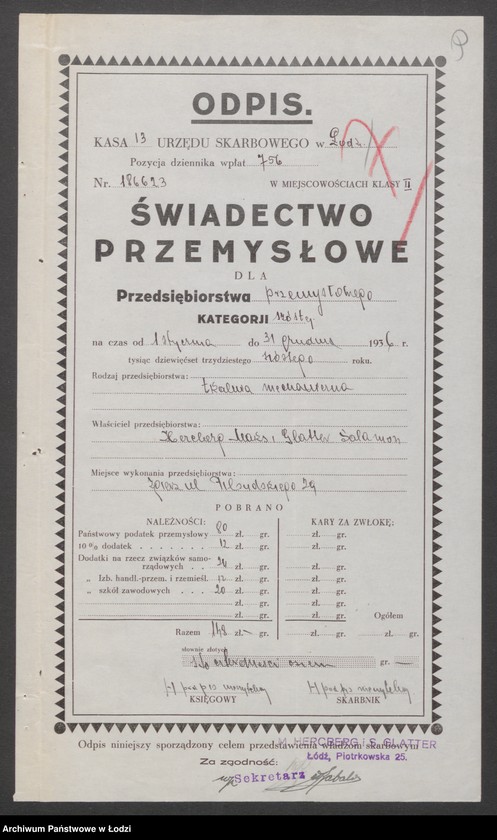 ODPIS.
KASA 13 URZĘDU SKARBOWEGO w Łodzi
Pozycja dziennika wpłat 756
Nr. 186623 W MIEJSCOWOŚCIACH KLASY II
ŚWIADECTWO
PRZEMYSŁOWE
DLA
Przedsiębiorstwa przemysłowego
KATEGORJI szóstej
na czas od 1 stycznia do 31 grudnia 1936 r.
tysiąc dziewięćset trzydziestego szóstego roku.
Rodzaj przedsiębiorstwa:
tkalnia mechaniczna
Właściciel przedsiębiorstwa:
Hercberg Maks i Glatter Salamon
Miejsce wykonania przedsiębiorstwa:
Zgierz ul Piłsudskiego 29
POBRANO
NALEŻNOŚCI: KARY ZA ZWŁOKĘ:
Państwowy podatek przemysłowy 80 zł. gr. zł. gr.
10% dodatek 12 zł. gr. zł. gr.
Dodatki na rzecz związków samo-
rządowych 24 zł. gr. zł. gr.
„ Izb. handl.-przem. i rzemieśl. 12 zł. gr. zł. gr.
„ szkół zawodowych 20 zł. gr. zł. gr.
zł. gr. zł. gr.
zł. gr. zł. gr. Ogółem
Razem 148 zł. gr. zł. gr. zł. gr.
słownie złotych
sto czterdzieści osiem gr.
KSIĘGOWY SKARBNIK
Odpis niniejszy sporządzony celem przedstawienia władzom skarbowym
M. HERCBERG i S. GLATTER
Łódź, Piotrkowska 25.
Za zgodność:
Sekretarz
Archiwum Państwowe w Łodzi